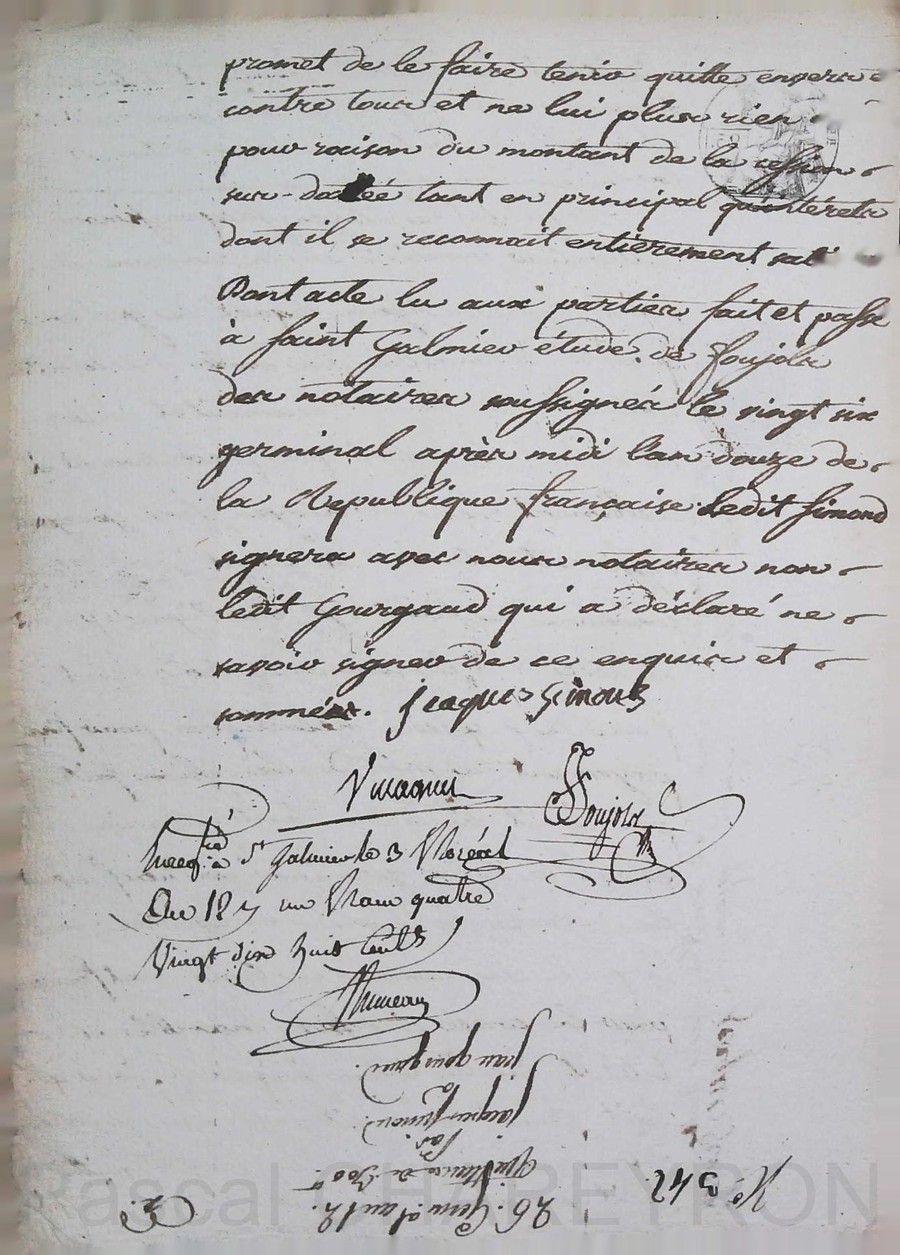 promet de le faire tenir quitte envers e
contre tous et ne lui plus rien
pour raison du montant de la cession
sur-datée tant en principal qu'intérets
dont il se reconnait entierement sat
Dont acte lu aux parties fait et passé
à Saint Galmier étude de foujols
des notaires soussignés le vingt six
germinal après midi l'an douze de
la République française ledit Simond
signera avec nous notaires non
ledit Gourgaud qui a déclaré ne
savoir signer de ce enquis et
sommés. jacques Simond
foujols
à St Galmier le 3 floréal
an 12 un franc quatre
vingt dix huit cents
26. Germal an 12.
quittance de 300
par
jacques Simond
à
jean gourgaud
No 342
Pascal CHAREYRON